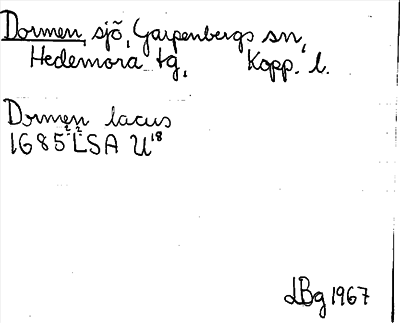 Dormen, sjö, Garpenbergs sn,
Hedemora tg, Kopp. l.
Dormen lacus
1685 LSA U 18
LBg 1967